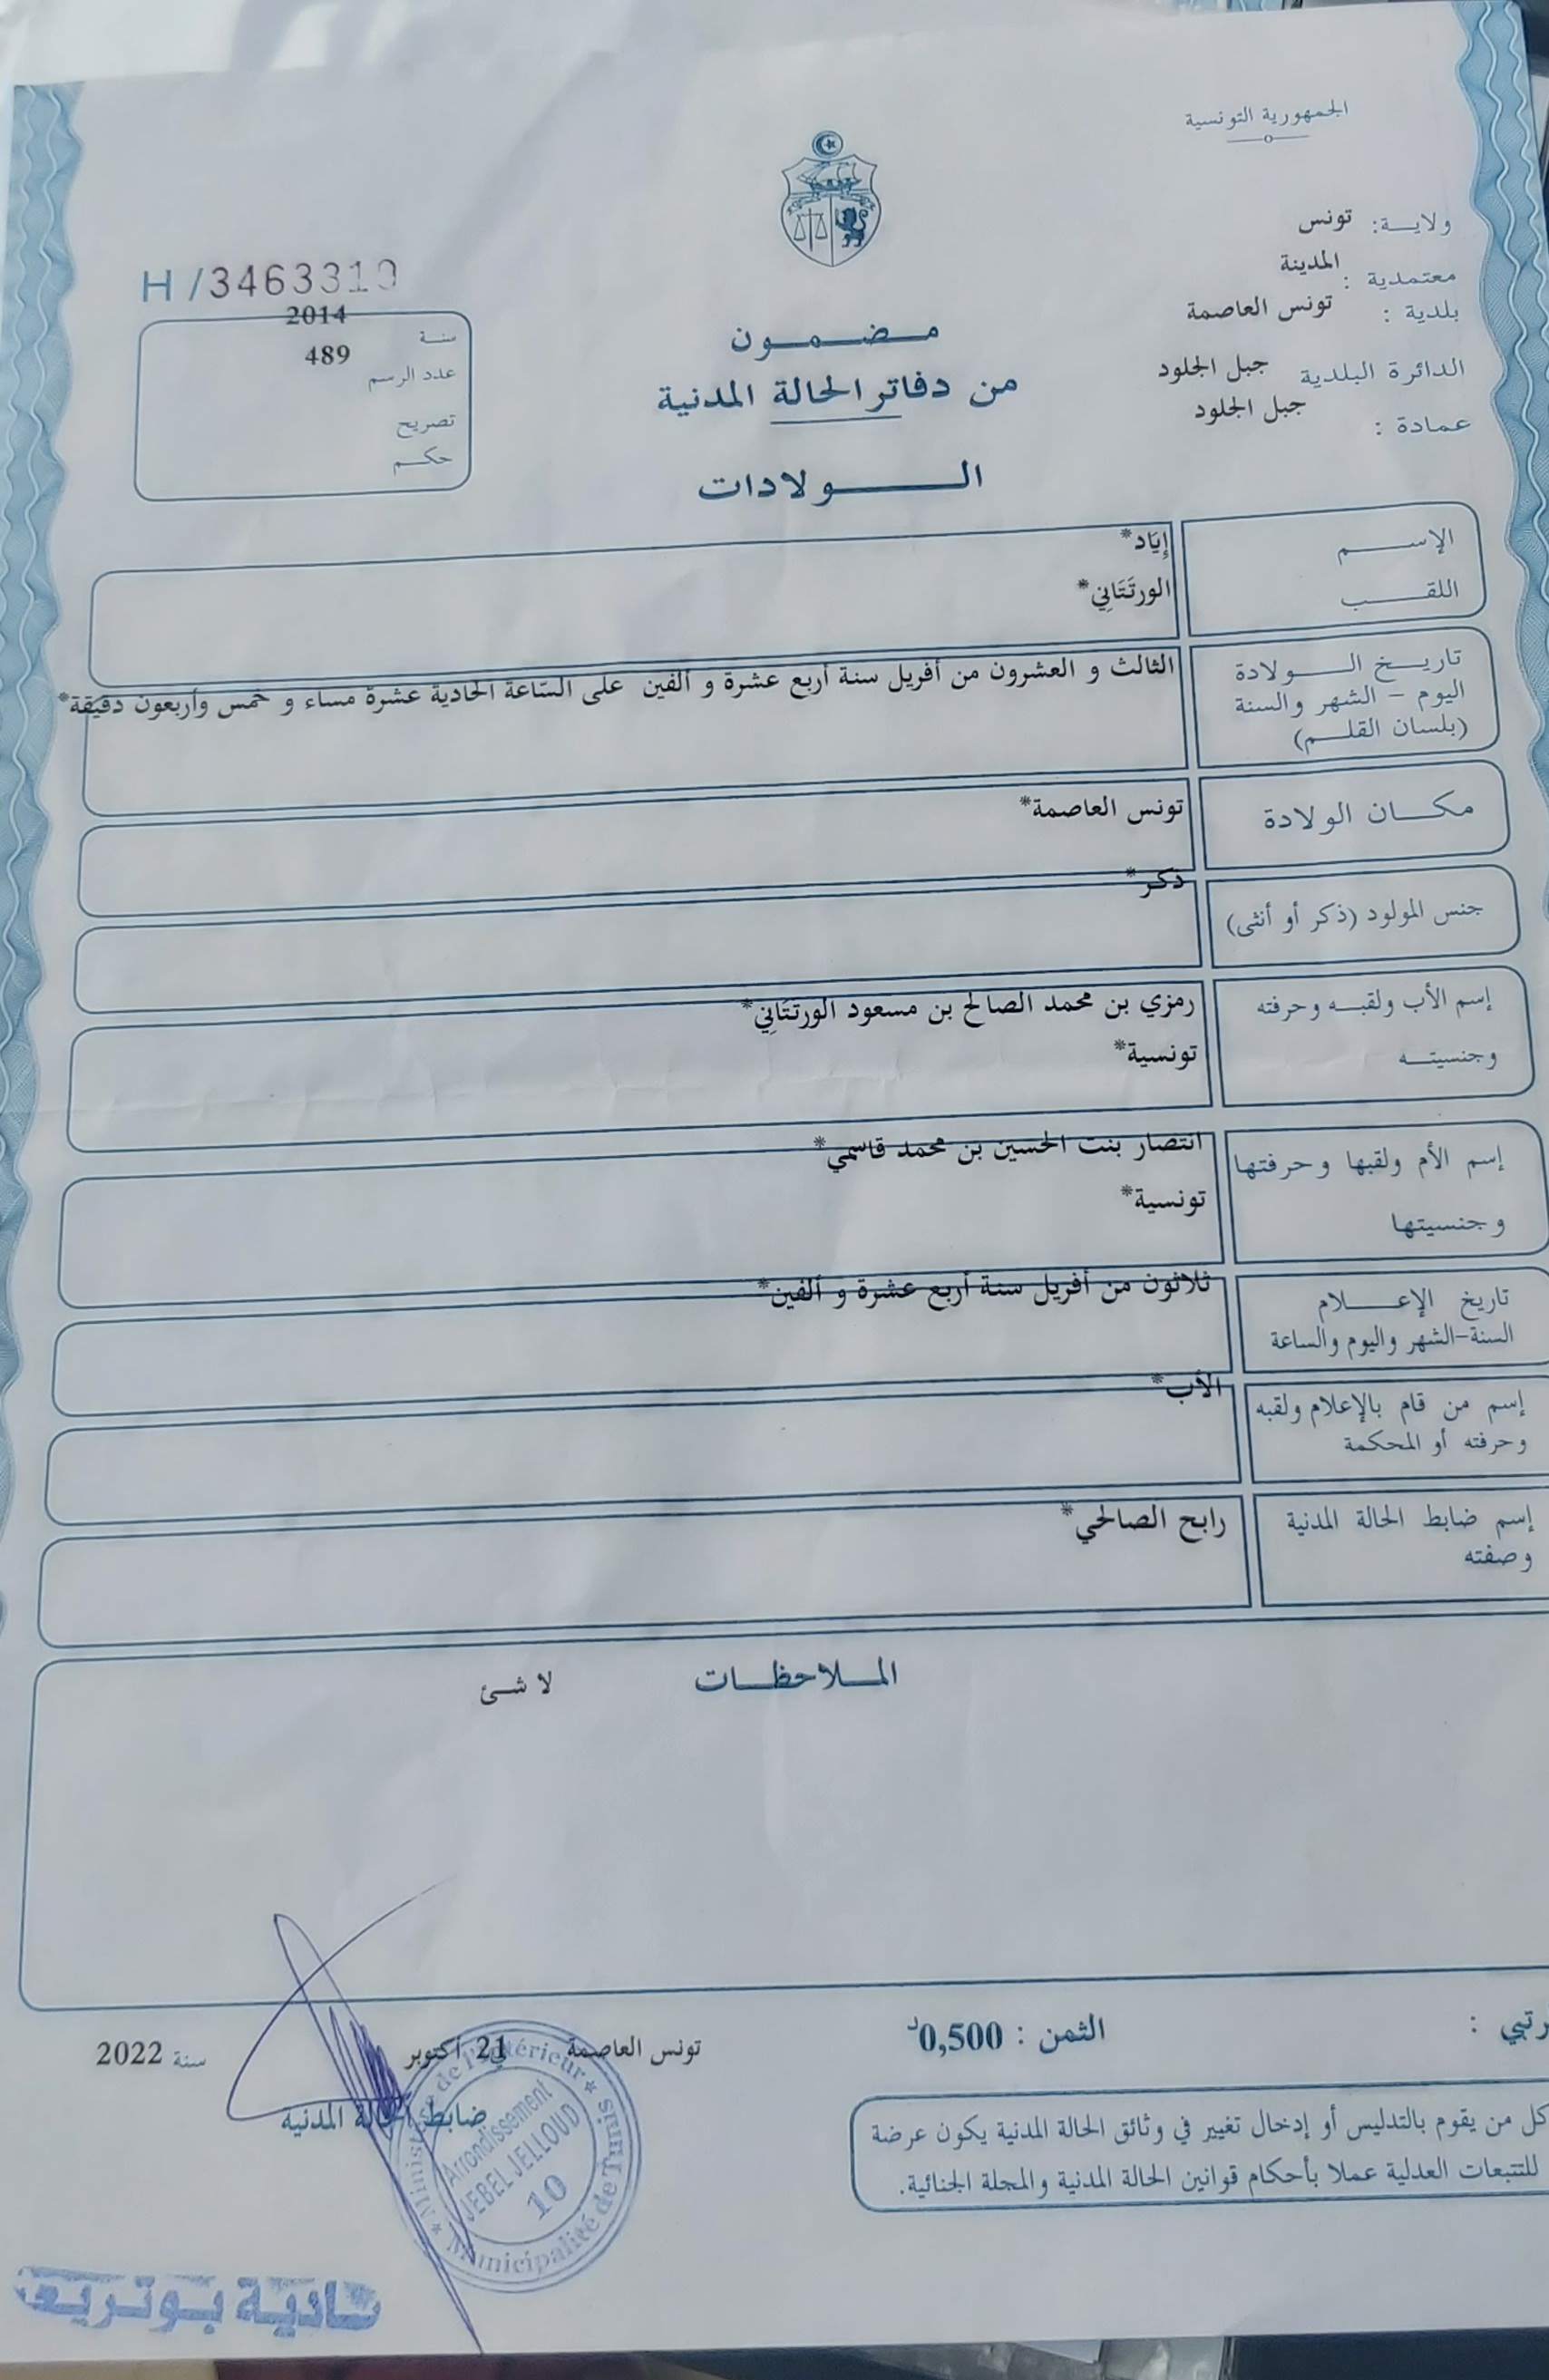 الجمهورية التونسية
ولايـــة: تونس
معتمدية : المدينة
بلدية : تونس العاصمة
الدائرة البلدية جبل الجلود
عمادة : جبل الجلود
H /3463310
سنــة 2014
عدد الرسم 489
تصريح
حكــم
مــضــمــون
من دفاتر الحالة المدنية
الـــولادات
الإســـم إِيَاد*
اللقـــب الورتَتَانِي*
تاريــخ الـــولادة الثالث و العشرون من أفريل سنة أربع عشرة و ألفين على السّاعة الحادية عشرة مساء و خمس وأربعون دقيقة*
اليوم – الشهر والسنة
(بلسان القلــم)
مكــان الولادة تونس العاصمة*
جنس المولود (ذكر أو أنثى) ذكر*
إسم الأب ولقبــه وحرفته رمزي بن محمد الصالح بن مسعود الورتَتَانِي*
وجنسيتــه تونسية*
إسم الأم ولقبها وحرفتها انتصار بنت الحسين بن محمد قاسمي*
وجنسيتها تونسية*
تاريخ الإعـــلام ثلاثون من أفريل سنة أربع عشرة و ألفين*
السنة-الشهر واليوم والساعة
إسم من قام بالإعلام ولقبه الأب*
وحرفته أو المحكمة
إسم ضابط الحالة المدنية رابح الصالحي*
وصفته
المــلاحظــات لا شئ
رتبي :
الثمن : 0,500د
تونس العاصمة في 21 أكتوبر سنة 2022
ضابط الحالة المدنية
كل من يقوم بالتدليس أو إدخال تغيير في وثائق الحالة المدنية يكون عرضة
للتتبعات العدلية عملا بأحكام قوانين الحالة المدنية والمجلة الجنائية.
Ministère de l'Intérieur * Municipalité de Tunis *
Arrondissement
JEBEL JELLOUD
10